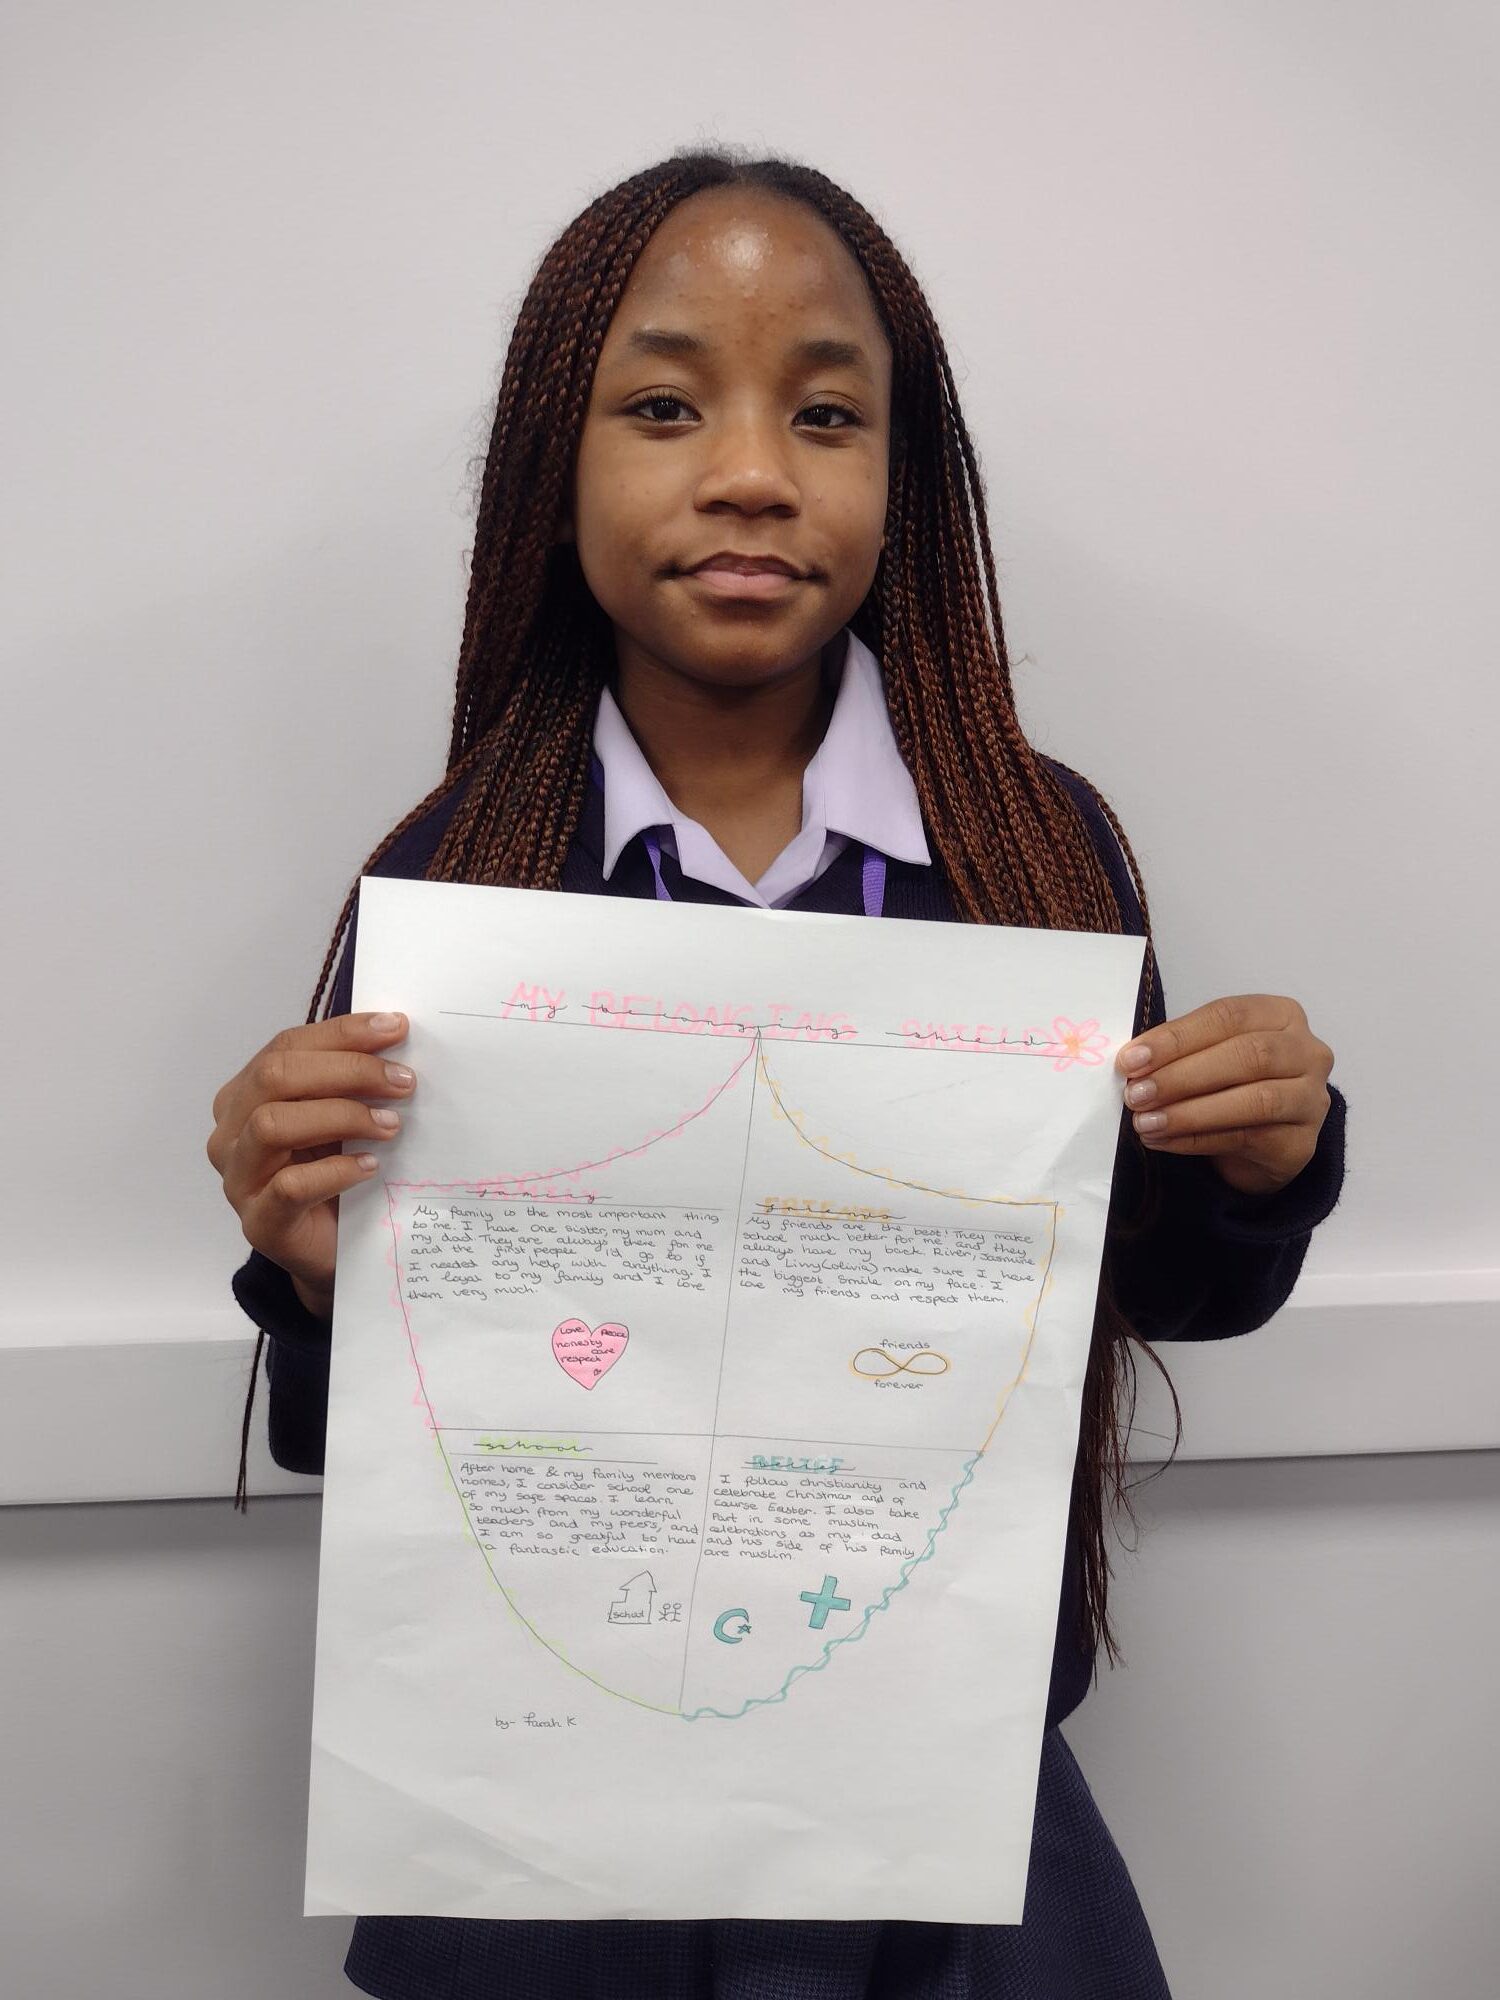 MY BELONGING SHIELD
my belonging shield
FAMILY
family
My family is the most important thing
to me. I have one sister, my mum and
my dad. They are always there for me
and the first people I'd go to if
I needed any help with anything. I
am loyal to my family and I love
them very much.
Love Peace
honesty
care
respect
FRIENDS
friends
My friends are the best! They make
school much better for me and they
always have my back. River, Jasmine
and Livvy(olivia) make sure I have
the biggest smile on my face. I
love my friends and respect them.
friends
forever
school
After home & my family members
homes, I consider school one
of my safe spaces. I learn
so much from my wonderful
teachers and my peers, and
I am so greatful to have
a fantastic education.
school
BELIEF
belief
I follow christianity and
celebrate Christmas and of
course Easter. I also take
Part in some muslim
celebrations as my dad
and his side of his family
are muslim.
by- Farah K